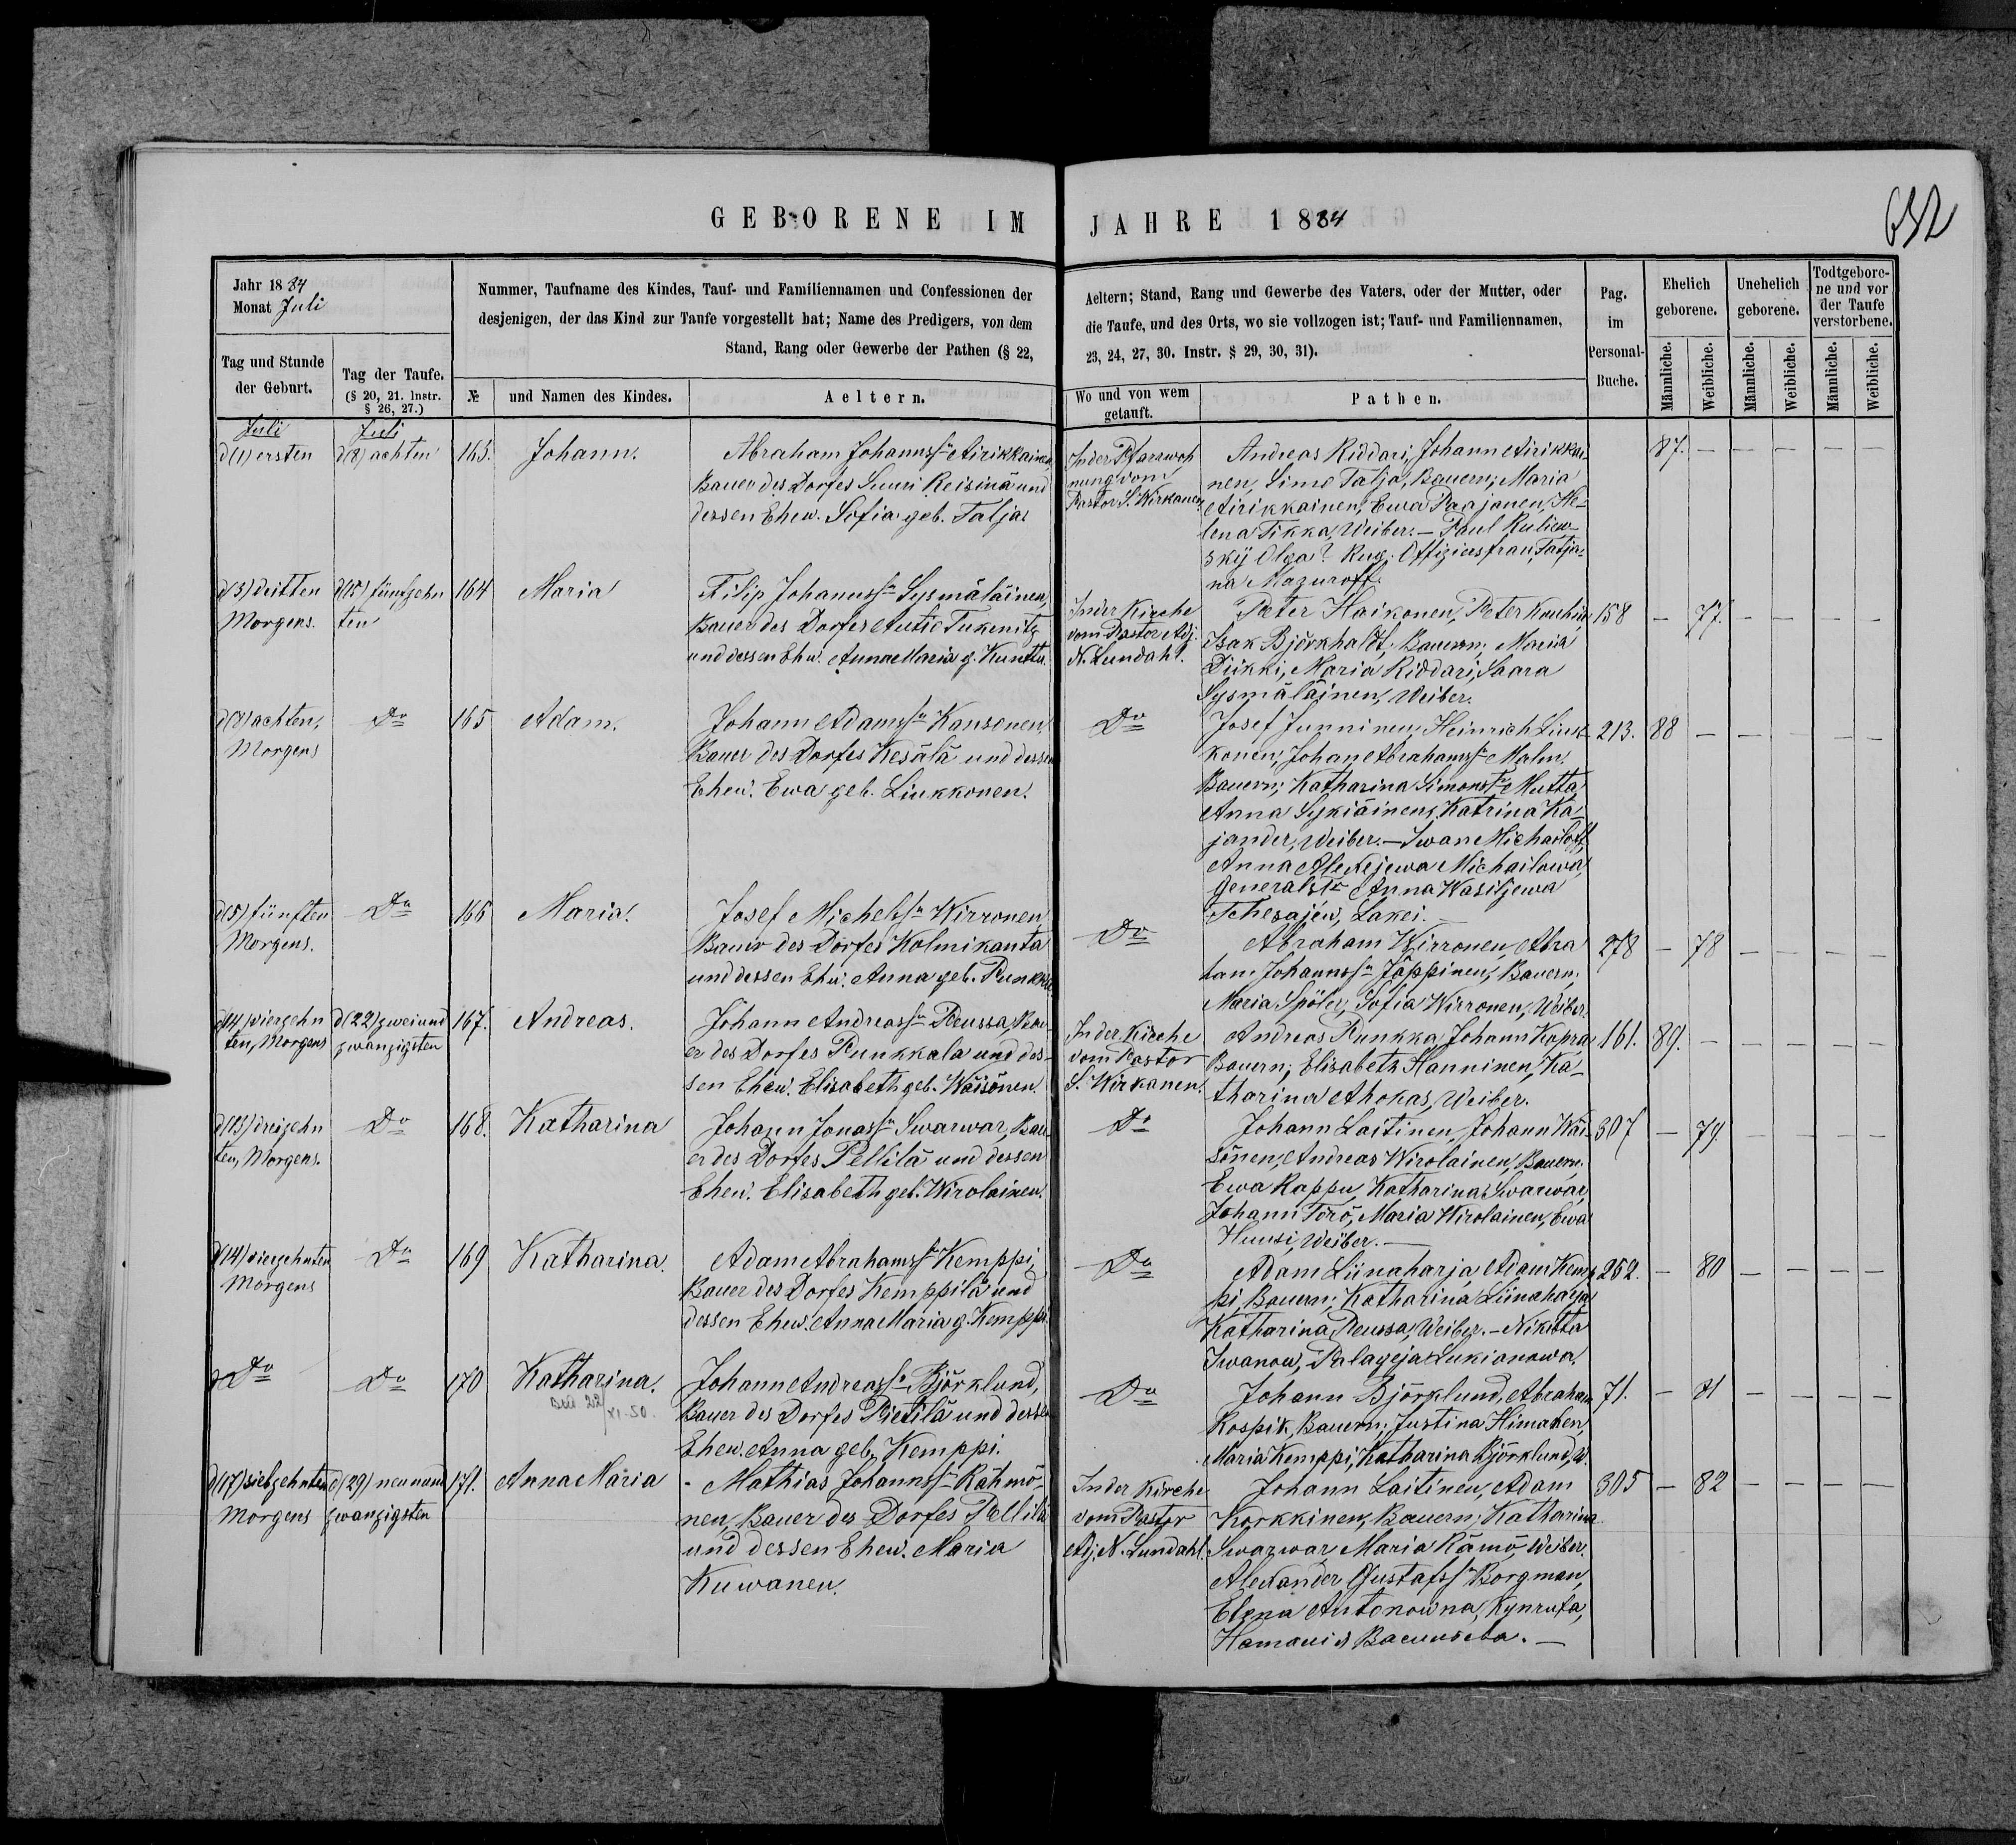 GEBORENE IM JAHRE 1884
632
Jahr 1884
Monat Juli
Tag und Stunde
der Geburt.
Tag der Taufe.
(§ 20, 21. Instr.
§ 26, 27.)
Nummer, Taufname des Kindes, Tauf- und Familiennamen und Confessionen der
desjenigen, der das Kind zur Taufe vorgestellt hat; Name des Predigers, von dem
Stand, Rang oder Gewerbe der Pathen (§ 22,
№
und Namen des Kindes.
Aeltern.
Aeltern; Stand, Rang und Gewerbe des Vaters, oder der Mutter, oder
die Taufe, und des Orts, wo sie vollzogen ist; Tauf- und Familiennamen,
23, 24, 27, 30. Instr. § 29, 30, 31).
Wo und von wem
getauft.
Pathen.
Pag.
im
Personal-
Buche.
Ehelich
geborene.
Unehelich
geborene.
Todtgebore-
ne und vor
der Taufe
verstorbene.
Männliche.
Weibliche.
Männliche.
Weibliche.
Männliche.
Weibliche.
Juli
d (1) ersten
Juli
d (8) achten
163.
Johann.
Abraham Johannssn Airikkainen
Bauer des Dorfes Suuri Reisinä und
dessen Ehew. Sofia geb. Talja
In der Pfarrwoh
nung vom
Pastor S. Wirkanen
Andreas Riddari, Johann Airikkai-
nen, Simo Talja, Bauern; Maria
Airikkainen, Ewa Paajanen, He-
lena Tikka, Weiber. — Paul Ruliew-
skij Olga? Rug. Offiziersfrau, Tatja-
na Mazuroff.
87. — — — — —
d (3) dritten
Morgens.
d (15) fünfzehn
ten
164
Maria
Filip Johannssn Sysmäläinen,
Bauer des Dorfes Autio Tukenitz
und dessen Ehw. Anna Maria g. Kunttu.
In der Kirche
vom Pastor Adj.
N. Lundahl.
Peter Haikonen, Peter Kauhia
Isak Björkhaldt, Bauern; Maria
Piikki, Maria Riddari, Saara
Sysmäläinen, Weiber.
158 — 77. — — — —
d (8) achten,
Morgens
Do
165
Adam.
Johann Adamssn Kansonen,
Bauer des Dorfes Kesälä und dessen
Ehew. Ewa geb. Liukkonen.
Do
Josef Junninen, Heinrich Liuk-
konen, Johan Abrahamssn Malm,
Bauern; Katharina Simonstr Mutta,
Anna Sykiäinen, Katrina Ka-
jander, Weiber. — Iwan Michailoff,
Anna Alexejewa Michailowa,
Generalstr Anna Wasiljewa
Lakei. —
213. 88 — — — — —
d (5) fünften
Morgens.
Do
166
Maria.
Josef Michelssn Wirronen
Bauer des Dorfes Kolmikanta
und dessen Ehw. Anna geb. Punkka
Do
Abraham Wirronen, Abra
ham Johannssn Jäppinen, Bauern;
Maria Spöler, Sofia Wirronen, Weiber.
278 — 78 — — — —
d (14) vierzehn
ten, Morgens
d (22) zweiund
zwanzigsten
167.
Andreas.
Johann Andreassn Reussa, Bau-
er des Dorfes Punkkala und des-
sen Ehew. Elisabeth geb. Wäisönen.
In der Kirche
vom Pastor
S. Wirkanen.
Andreas Punkka, Johann Kapra
Bauern; Elisabeth Hanninen, Ka-
tharina Ahokas, Weiber.
161. 89. — — — — —
d (13) dreizehn
ten, Morgens.
Do
168.
Katharina
Johann Jonassn Swarwar, Bau-
er des Dorfes Pellilä und dessen
Ehew. Elisabeth geb. Wirolainen.
Do
Johann Laitinen, Johann Wäi-
sönen, Andreas Wirolainen, Bauern.
Ewa Rappu, Katharina Swarwar,
Johann Törö, Maria Wirolainen, Ewa
Huusi, Weiber. —
307 — 79 — — — —
d (14) vierzehnten
Morgens
Do
169
Katharina.
Adam Abrahamssn Kemppi,
Bauer des Dorfes Kemppilä und
dessen Ehew. Anna Maria g. Kemppi.
Do
Adam Liinaharja, Adam Kemp
pi, Bauern; Katharina Liinaharja
Katharina Reussa, Weiber. — Nikitta
Iwanow, Palageja Lukianowa.
262. — 80 — — — —
Do
Do
170
Katharina.
22/XI.50.
Johann Andreassn Björklund,
Bauer des Dorfes Pietilä und dessen
Ehew. Anna geb. Kemppi.
Do
Johann Björklund, Abraham
Rospik, Bauern; Justina Himanen,
Maria Kemppi, Katharina Björklund, W.
71. — 81 — — — —
d (17) siebzehnten
Morgens
d (29) neunund
zwanzigsten
171.
Anna Maria
Mathias Johannssn Rähmö-
nen, Bauer des Dorfes Pellilä
und dessen Ehew. Maria
Kuwanen.
In der Kirche
vom Pastor
Adj. N. Lundahl.
Johann Laitinen, Adam
Korkkinen, Bauern; Katharina
Swarwar, Maria Rämö, Weiber.
Alexander Gustafssn Borgman,
Elena Antonowna,
305 — 82 — — — —